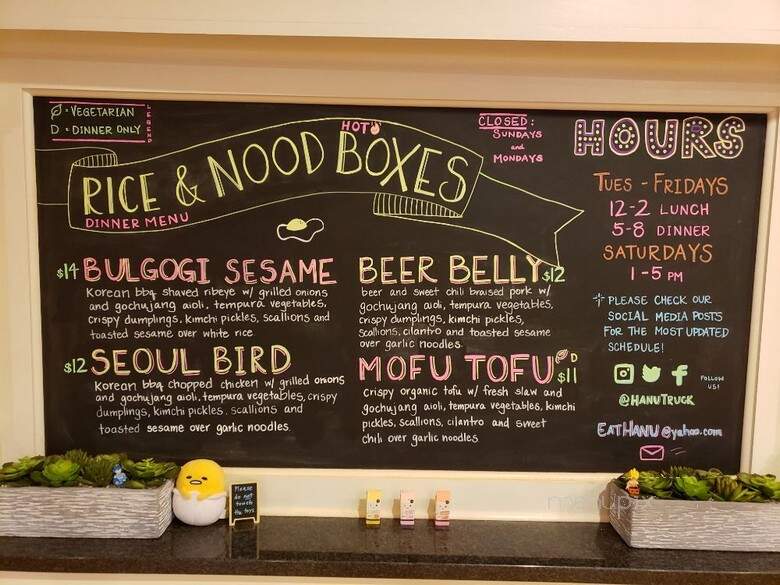 Ø • VEGETARIAN
D • DINNER ONLY
LEGEND
HOT
RICE & NOOD BOXES
DINNER MENU
CLOSED:
SUNDAYS
and
MONDAYS
$14 BULGOGI SESAME
Korean bbq shaved ribeye w/ grilled onions
and gochujang aioli, tempura vegetables,
crispy dumplings, kimchi pickles, scallions and
toasted sesame over white rice
$12 SEOUL BIRD
Korean bbq chopped chicken w/ grilled onions
and gochujang aioli, tempura vegetables, crispy
dumplings, kimchi pickles, scallions and
toasted sesame over garlic noodles
BEER BELLY $12
beer and sweet chili braised pork w/
gochujang aioli, tempura vegetables,
crispy dumplings, kimchi pickles,
scallions, cilantro and toasted sesame
over garlic noodles
MOFU TOFU D $11
crispy organic tofu w/ fresh slaw and
gochujang aioli, tempura vegetables, kimchi
pickles, scallions, cilantro and sweet
chili over garlic noodles
HOURS
TUES - FRIDAYS
12-2 LUNCH
5-8 DINNER
SATURDAYS
1-5 PM
PLEASE CHECK OUR
SOCIAL MEDIA POSTS
FOR THE MOST UPDATED
SCHEDULE!
FOLLOW
US!
@HANUTRUCK
EATHANU@yahoo.com
Please
do not
touch
the toys